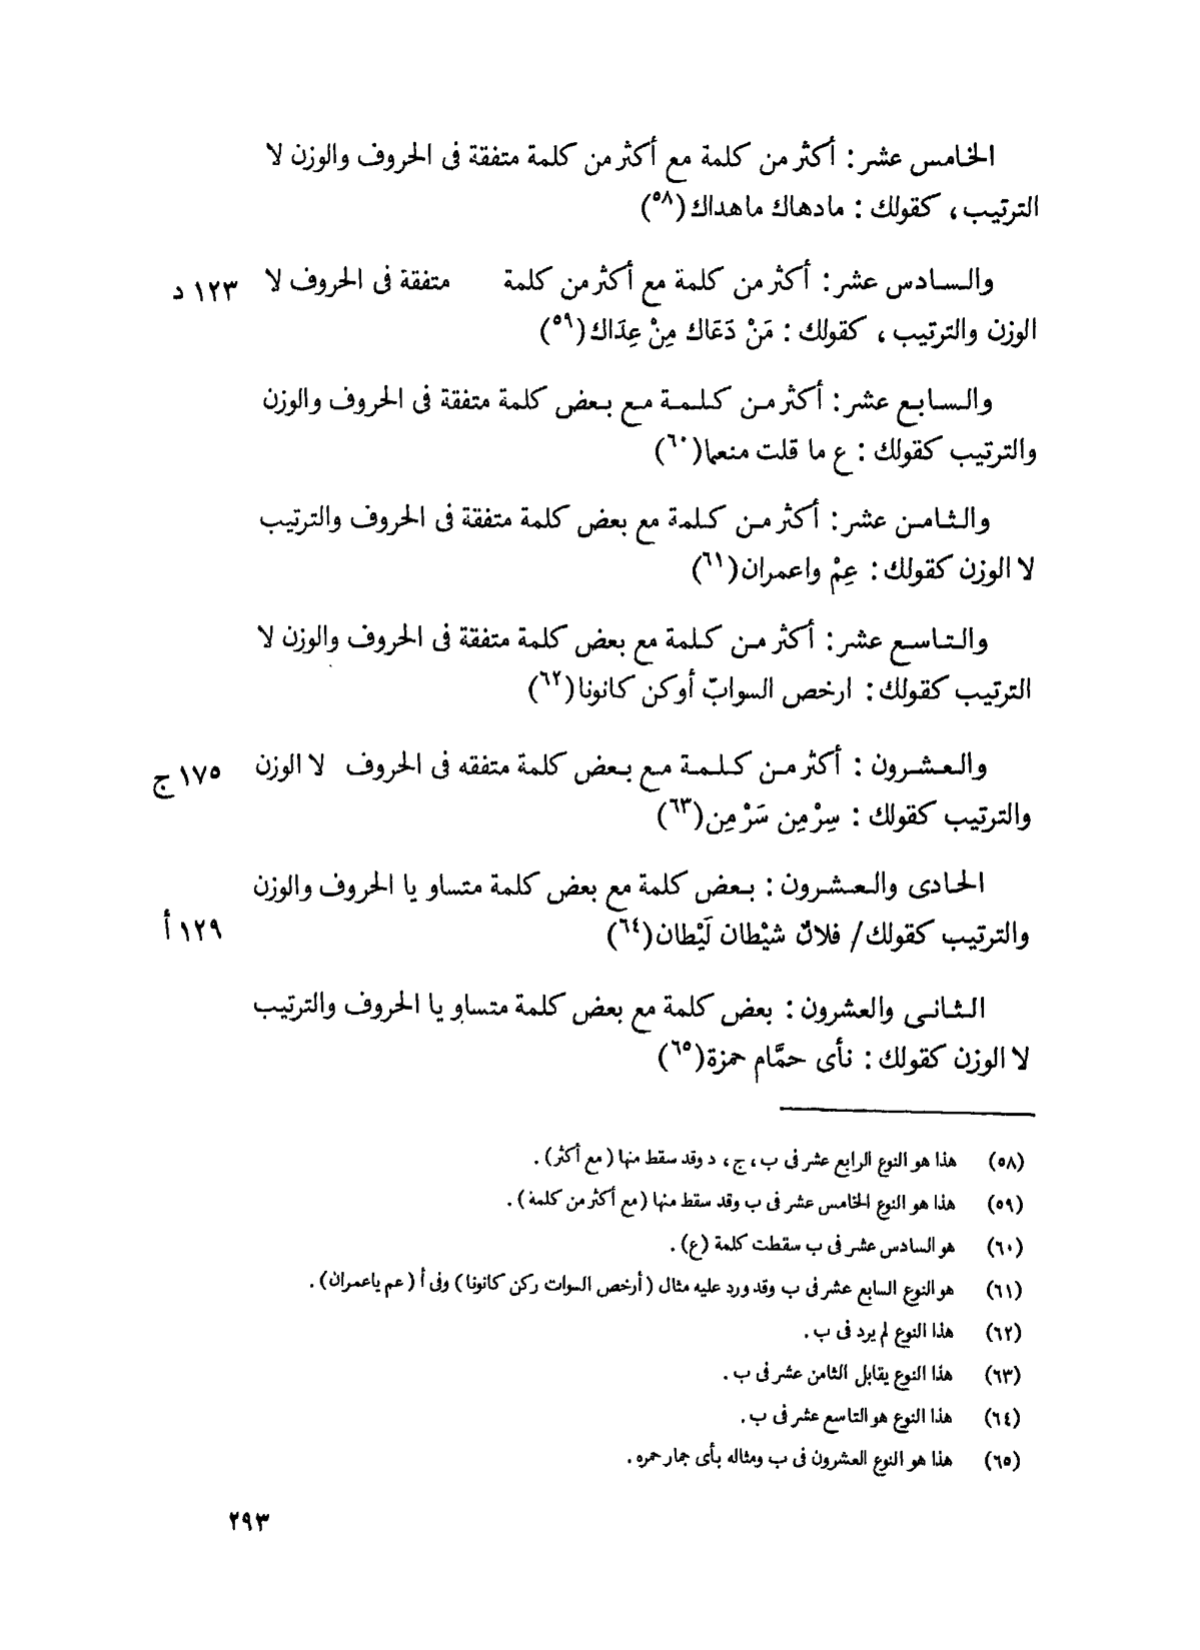 الخامس عشر : أكثر من كلمة مع أكثر من كلمة متفقة فى الحروف والوزن لا
الترتيب ، كقولك : مادهاك ماهداك (٥٨)
والسادس عشر : أكثر من كلمة مع أكثر من كلمة متفقة فى الحروف لا
١٢٣ د
الوزن والترتيب ، كقولك : مَنْ دَعَاك مِنْ عِدَاك (٥٩)
والسابع عشر : أكثر من كلمة مع بعض كلمة متفقة فى الحروف والوزن
والترتيب كقولك : ع ما قلت منعما (٦٠)
والثامن عشر : أكثر من كلمة مع بعض كلمة متفقة فى الحروف والترتيب
لا الوزن كقولك : عِمْ واعمران (٦١)
والتاسع عشر : أكثر من كلمة مع بعض كلمة متفقة فى الحروف والوزن لا
الترتيب كقولك : ارخص السوابّ أوكن كانونا (٦٢)
والعشرون : أكثر من كلمة مع بعض كلمة متفقه فى الحروف لا الوزن
١٧٥ ج
والترتيب كقولك : سِرْ مِن سَرْ مِن (٦٣)
الحادى والعشرون : بعض كلمة مع بعض كلمة متساو يا الحروف والوزن
والترتيب كقولك / فلانٌ شيْطان لَيْطان (٦٤)
١٢٩ أ
الثانى والعشرون : بعض كلمة مع بعض كلمة متساو يا الحروف والترتيب
لا الوزن كقولك : نأى حمَّام حمزة (٦٥)
(٥٨) هذا هو النوع الرابع عشر فى ب ، ج ، د وقد سقط منها ( مع أكثر ) .
(٥٩) هذا هو النوع الخامس عشر فى ب وقد سقط منها ( مع أكثر من كلمة ) .
(٦٠) هو السادس عشر فى ب سقطت كلمة ( ع ) .
(٦١) هو النوع السابع عشر فى ب وقد ورد عليه مثال ( أرخص السوات ركن كانونا ) وفى أ ( عم ياعمران ) .
(٦٢) هذا النوع لم يرد فى ب .
(٦٣) هذا النوع يقابل الثامن عشر فى ب .
(٦٤) هذا النوع هو التاسع عشر فى ب .
(٦٥) هذا هو النوع العشرون فى ب ومثاله بأى جمار حمره .
٢٩٣